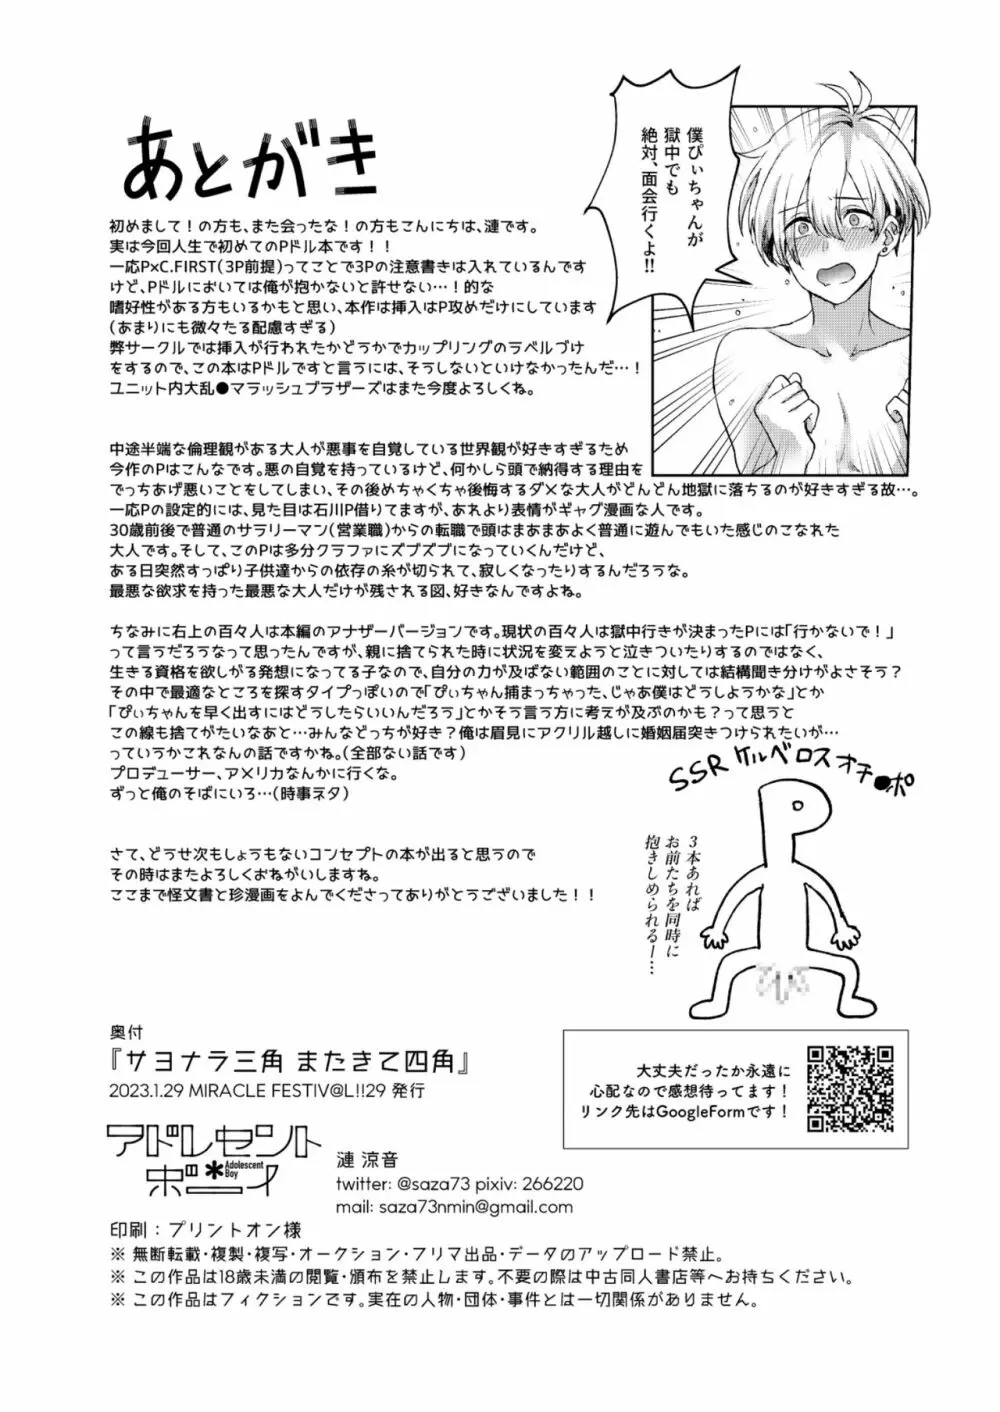 あとがき
僕ぴぃちゃんが
獄中でも
絶対、面会行くよ!!
初めまして！の方も、また会ったな！の方もこんにちは、漣です。
実は今回人生で初めてのPドル本です！！
一応P×C.FIRST(3P前提)ってことで3Pの注意書きは入れているんです
けど、Pドルにおいては俺が抱かないと許せない…！的な
嗜好性がある方もいるかもと思い、本作は挿入はP攻めだけにしています
(あまりにも微々たる配慮すぎる)
弊サークルでは挿入が行われたかどうかでカップリングのラベルづけ
をするので、この本はPドルですと言うには、そうしないといけなかったんだ…！
ユニット内大乱●マラッシュブラザーズはまた今度よろしくね。
中途半端な倫理観がある大人が悪事を自覚している世界観が好きすぎるため
今作のPはこんなです。悪の自覚を持っているけど、何かしら頭で納得する理由を
でっちあげ悪いことをしてしまい、その後めちゃくちゃ後悔するダメな大人がどんどん地獄に落ちるのが好きすぎる故…。
一応Pの設定的には、見た目は石川P借りてますが、あれより表情がギャグ漫画な人です。
30歳前後で普通のサラリーマン(営業職)からの転職で頭はまあまあよく普通に遊んでもいた感じのこなれた
大人です。そして、このPは多分クラファにズブズブになっていくんだけど、
ある日突然すっぱり子供達からの依存の糸が切られて、寂しくなったりするんだろうな。
最悪な欲求を持った最悪な大人だけが残される図、好きなんですよね。
ちなみに右上の百々人は本編のアナザーバージョンです。現状の百々人は獄中行きが決まったPには「行かないで！」
って言うだろうなって思ったんですが、親に捨てられた時に状況を変えようと泣きついたりするのではなく、
生きる資格を欲しがる発想になってる子なので、自分の力が及ばない範囲のことに対しては結構聞き分けがよさそう？
その中で最適なところを探すタイプっぽいので「ぴぃちゃん捕まっちゃった、じゃあ僕はどうしようかな」とか
「ぴぃちゃんを早く出すにはどうしたらいいんだろう」とかそう言う方に考えが及ぶのかも？って思うと
この線も捨てがたいなあと…みんなどっちが好き？俺は眉見にアクリル越しに婚姻届突きつけられたいが…
っていうかこれなんの話ですかね。(全部ない話です)
プロデューサー、アメリカなんかに行くな。
ずっと俺のそばにいろ…(時事ネタ)
さて、どうせ次もしょうもないコンセプトの本が出ると思うので
その時はまたよろしくおねがいしますね。
ここまで怪文書と珍漫画をよんでくださってありがとうございました！！
SSRケルベロスオチ●ポ
P
3本あれば
お前たちを同時に
抱きしめられるー…
奥付
『サヨナラ三角 またきて四角』
2023.1.29 MIRACLE FESTIV@L!!29 発行
アドレセント
ボーイ
Adolescent
Boy
漣 涼音
twitter: @saza73 pixiv: 266220
mail: saza73nmin@gmail.com
大丈夫だったか永遠に
心配なので感想待ってます！
リンク先はGoogleFormです！
印刷：プリントオン様
※ 無断転載・複製・複写・オークション・フリマ出品・データのアップロード禁止。
※ この作品は18歳未満の閲覧・頒布を禁止します。不要の際は中古同人書店等へお持ちください。
※ この作品はフィクションです。実在の人物・団体・事件とは一切関係がありません。